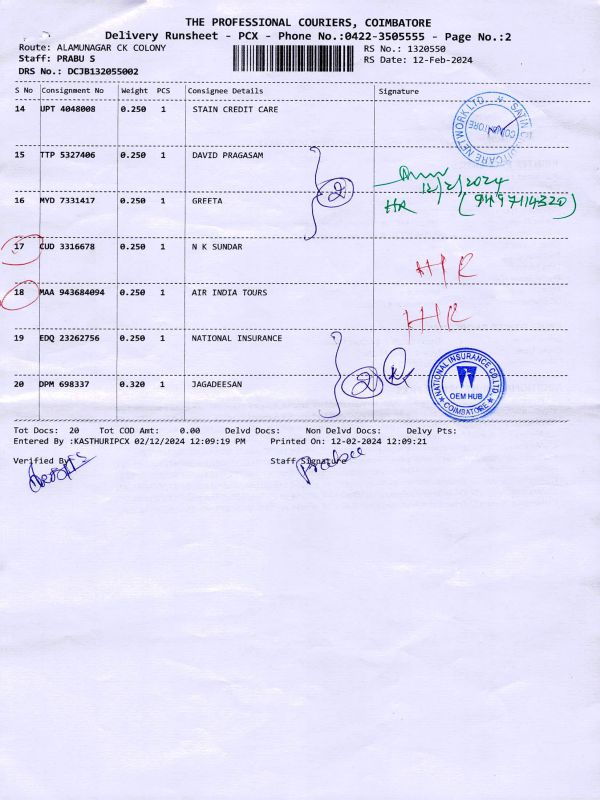 THE PROFESSIONAL COURIERS, COIMBATORE
Delivery Runsheet - PCX - Phone No.:0422-3505555 - Page No.:2
Route: ALAMUNAGAR CK COLONY
RS No.: 1320550
Staff: PRABU S
RS Date: 12-Feb-2024
DRS No.: DCJB132055002
S No Consignment No Weight PCS Consignee Details Signature
14 UPT 4048008 0.250 1 STAIN CREDIT CARE
15 TTP 5327406 0.250 1 DAVID PRAGASAM
12/2/2024
16 MYD 7331417 0.250 1 GREETA
HR (9497114320)
17 CUD 3316678 0.250 1 N K SUNDAR
HR
18 MAA 943684094 0.250 1 AIR INDIA TOURS
HR
19 EDQ 23262756 0.250 1 NATIONAL INSURANCE
NATIONAL INSURANCE CO LTD
OEM HUB
COIMBATORE
20 DPM 698337 0.320 1 JAGADEESAN
Tot Docs: 20 Tot COD Amt: 0.00 Delvd Docs: Non Delvd Docs: Delvy Pts:
Entered By :KASTHURIPCX 02/12/2024 12:09:19 PM Printed On: 12-02-2024 12:09:21
Verified By
Staff Signature